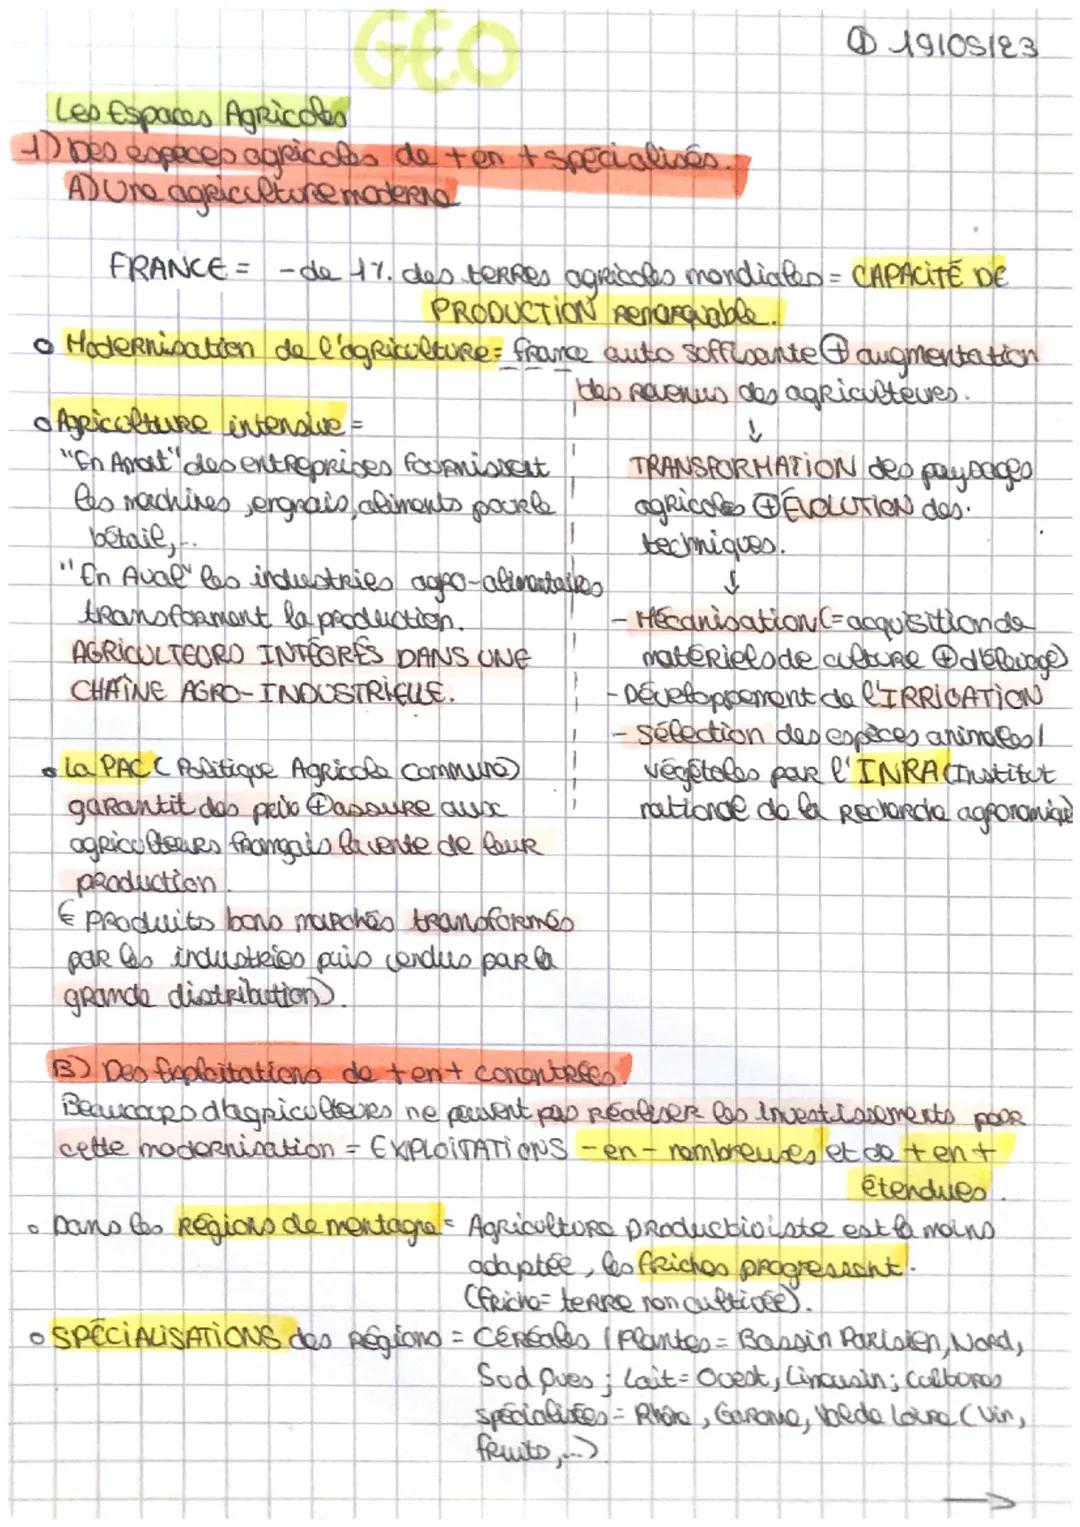 GÉO
① 19/05/23
Les Espaces Agricoles
1) Des espaces agricoles de + en + spécialisés.
A) Une agriculture moderne
FRANCE = - de 1%. des terres agricoles mondiales = CAPACITÉ DE
PRODUCTION remarquable.
o Modernisation de l'agriculture = france auto suffisante ⊕ augmentation
des revenus des agriculteurs.
↓
o Agriculture intensive =
"En Amont" des entreprises fournissent
les machines, engrais, aliments pour le
bétail,...
"En Aval" les industries agro-alimentaires
transforment la production.
AGRICULTEURS INTÉGRÉS DANS UNE
CHAÎNE AGRO-INDUSTRIELLE.
TRANSFORMATION des paysages
agricoles ⊕ ÉVOLUTION des
techniques.
↓
- Mécanisation (= acquisition de
matériels de culture ⊕ d'élevage)
- Développement de l'IRRIGATION
- Sélection des espèces animales /
végétales par l'INRA (Institut
national de la recherche agronomique
• La PAC ( Politique Agricole commune)
garantit des prix ⊕ assure aux
agriculteurs français la vente de leur
production.
( Produits bons marchés transformés
par les industries puis vendus par la
grande distribution).
B) Des Exploitations de + en + concentrées.
Beaucoups d'agriculteurs ne peuvent pas réaliser les investissements pour
cette modernisation = EXPLOITATIONS - en - nombreuses et de + en +
étendues.
o Dans les régions de montagne = Agriculture productiviste est la moins
adaptée, les friches progressent.
(friche = terre non cultivée).
o SPÉCIALISATIONS des régions = Céréales / Plantes = Bassin Parisien, Nord,
Sud Oues ; Lait = Ouest, Limousin ; cultures
spécialisées = Rhône, Garonne, Val de Loire (Vin,
fruits,...)
→